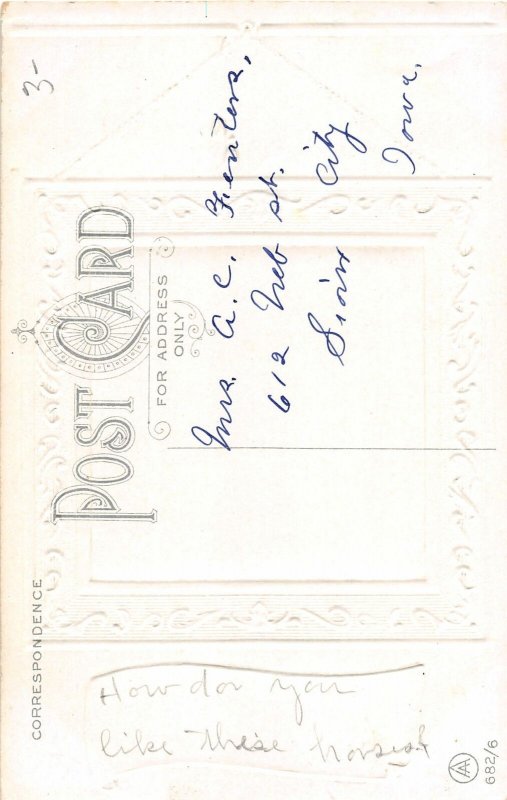 3-
CORRESPONDENCE
POST CARD
FOR ADDRESS
ONLY
Mrs. A. C. Fentera,
612 Neb st.
Sioux City
Iowa.
How dor you
like these horses?
682/6